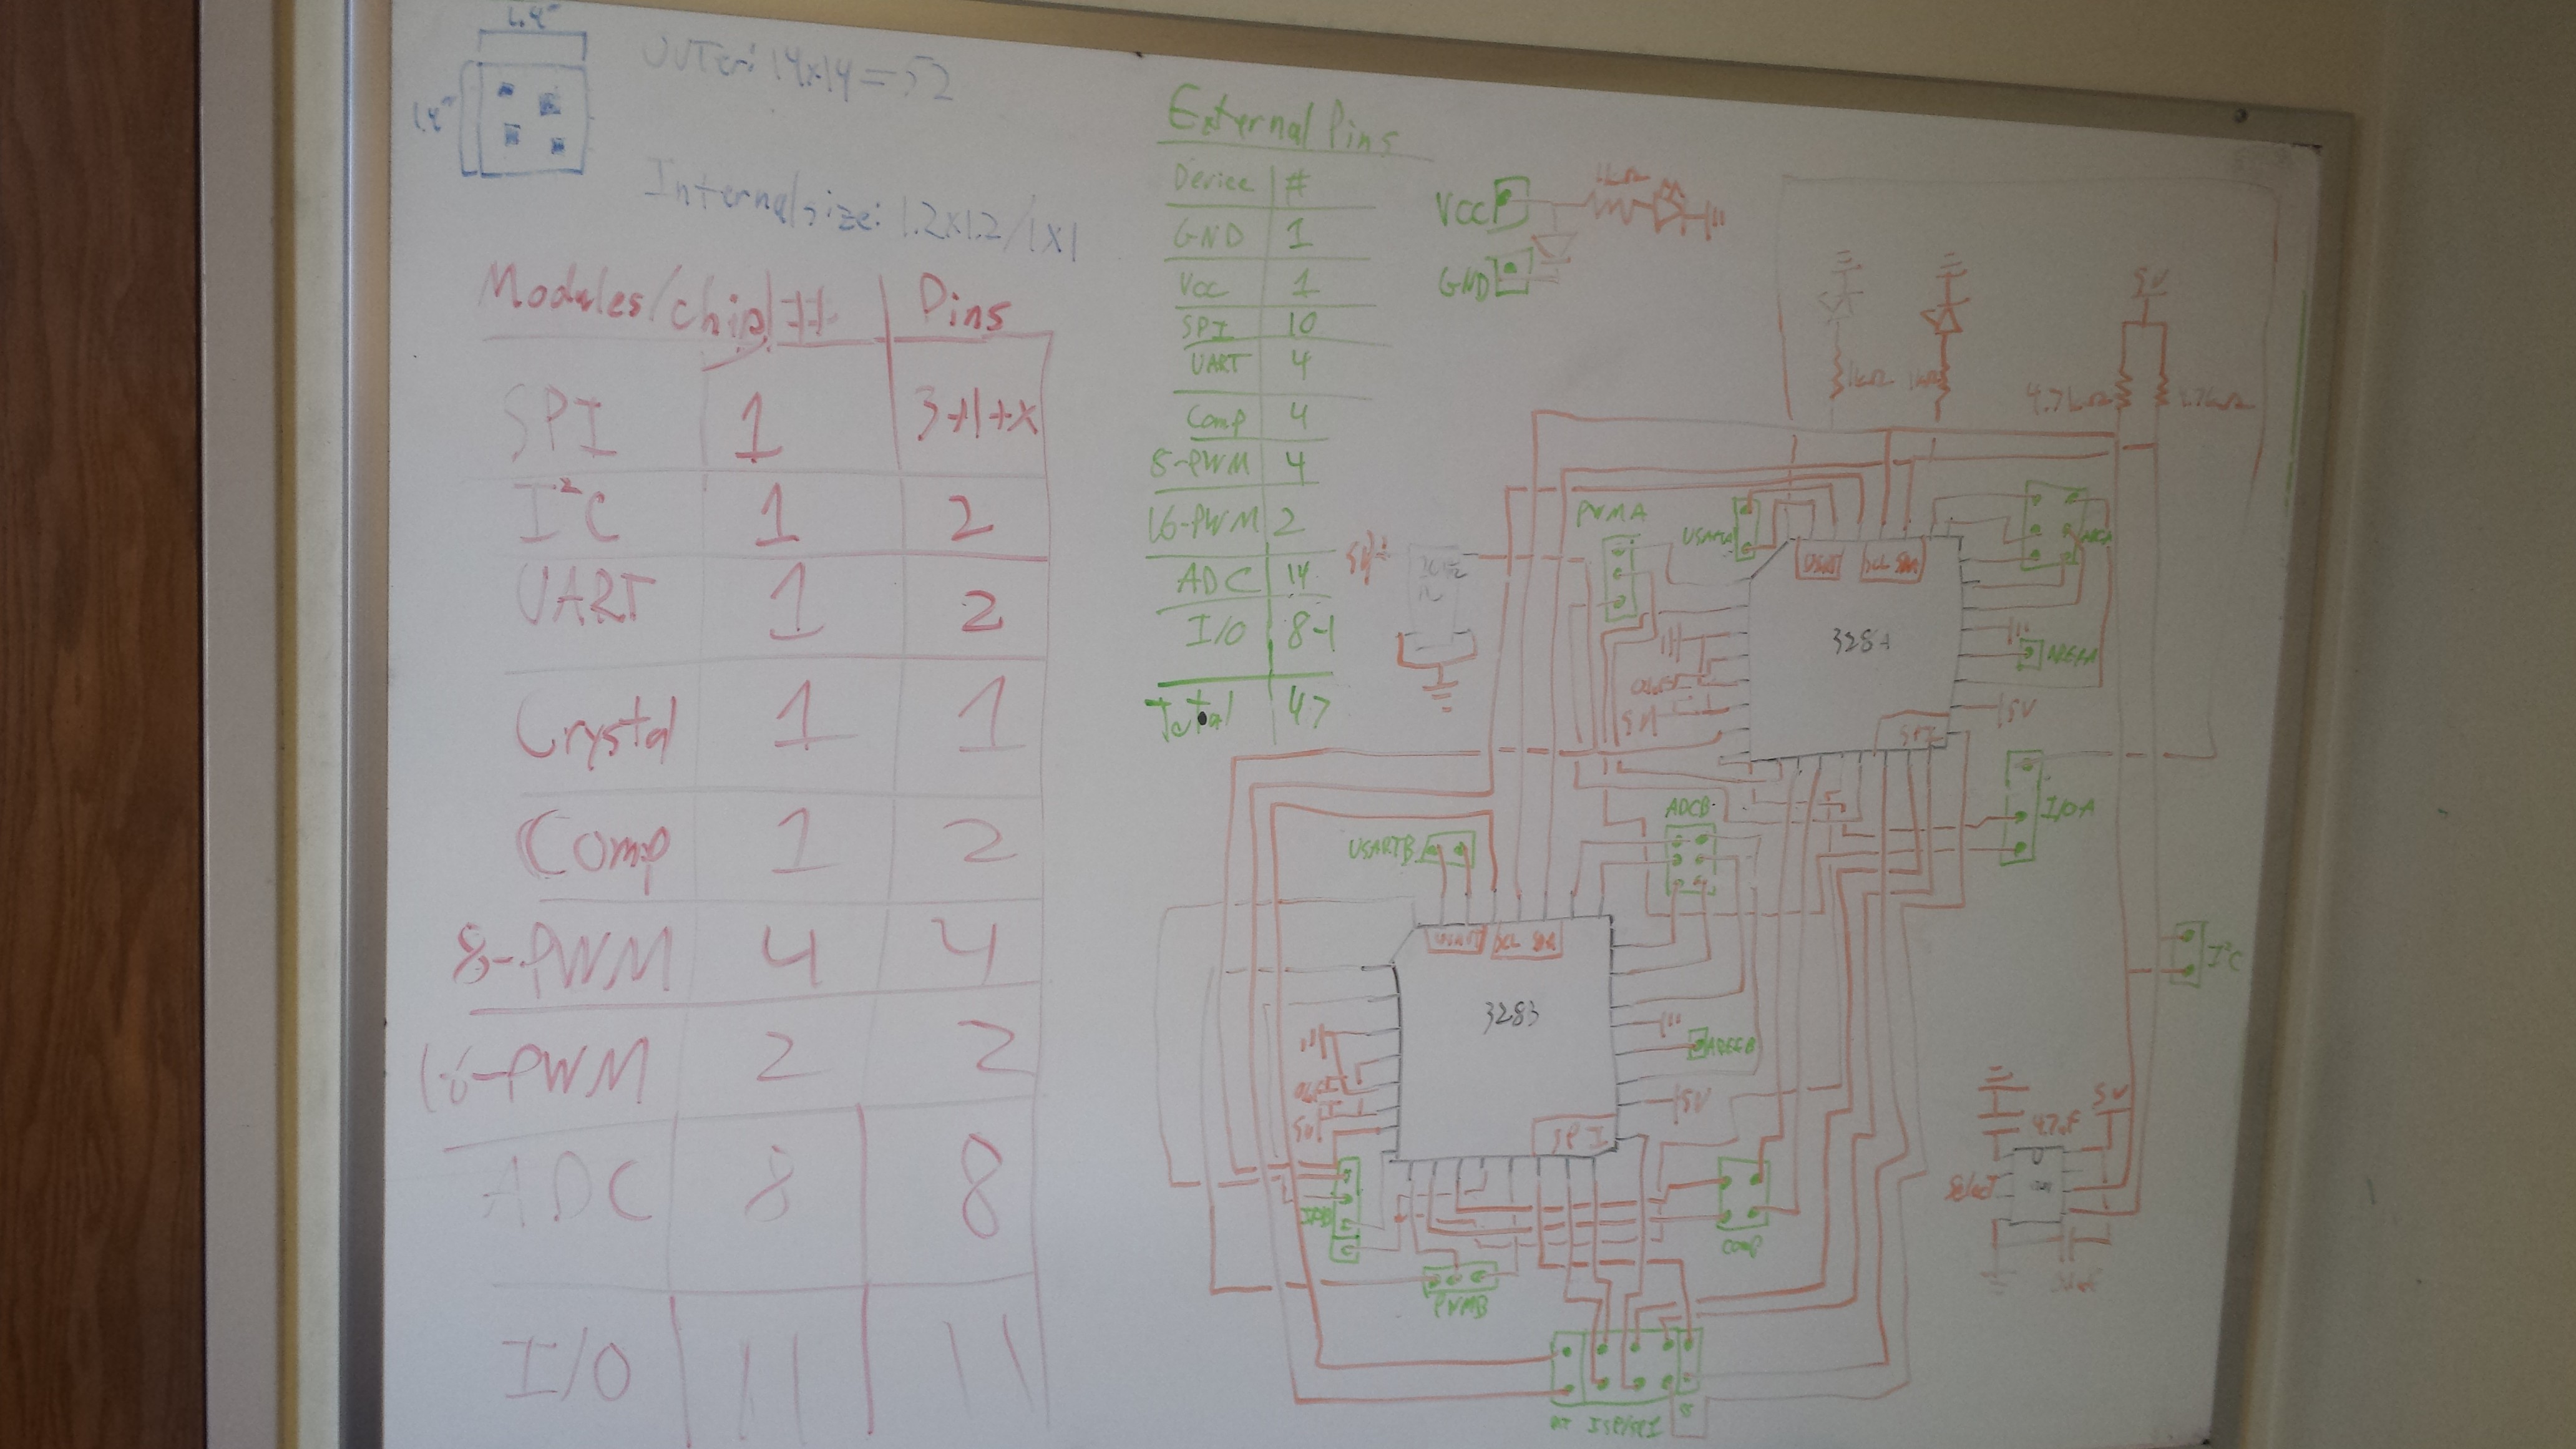 1.4"
1.4"
Outer: 14x14=52
Internal size: 1.2x1.2/1x1
Modules/chip # Pins
SPI 1 3+1+x
I²C 1 2
UART 1 2
Crystal 1 1
Comp 1 2
8-PWM 4 4
16-PWM 2 2
ADC 8 8
I/O 11 11
External Pins
Device #
GND 1
Vcc 1
SPI 10
UART 4
Comp 4
8-PWM 4
16-PWM 2
ADC 14
I/O 8-1
Total 47
VCC
1kΩ
GND
1kΩ
1kΩ
5V
4.7kΩ
4.7kΩ
PWMA
USARTA
USART
SCL SDA
ADCA
5V
328A
AREFA
5V
SPI
I/OA
ADCB
USARTB
USART
SCL SDA
I²C
328B
AREFB
5V
5V
SPI
5V
COMP
PWMB
ISP/SPI